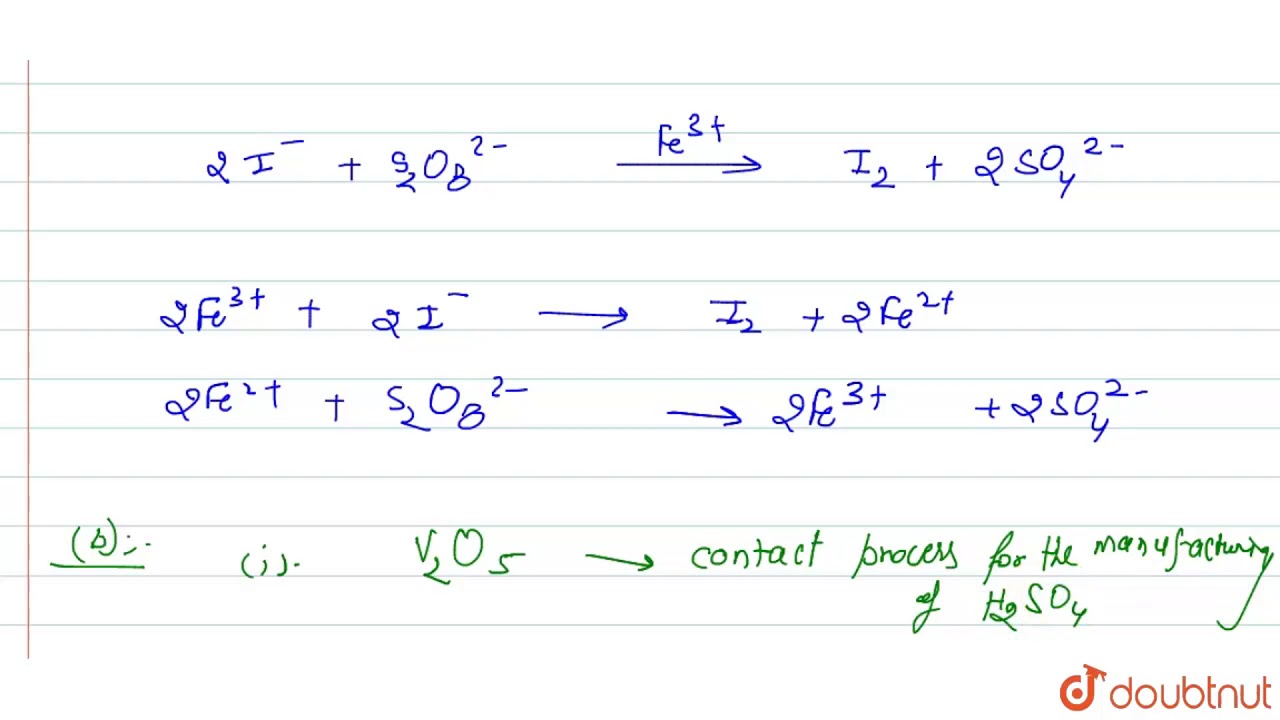 2I⁻ + S₂O₈²⁻ Fe³⁺→ I₂ + 2SO₄²⁻
2Fe³⁺ + 2I⁻ → I₂ + 2Fe²⁺
2Fe²⁺ + S₂O₈²⁻ → 2Fe³⁺ + 2SO₄²⁻
(b):- (i). V₂O₅ → contact process for the manufacturing
of H₂SO₄
doubtnut